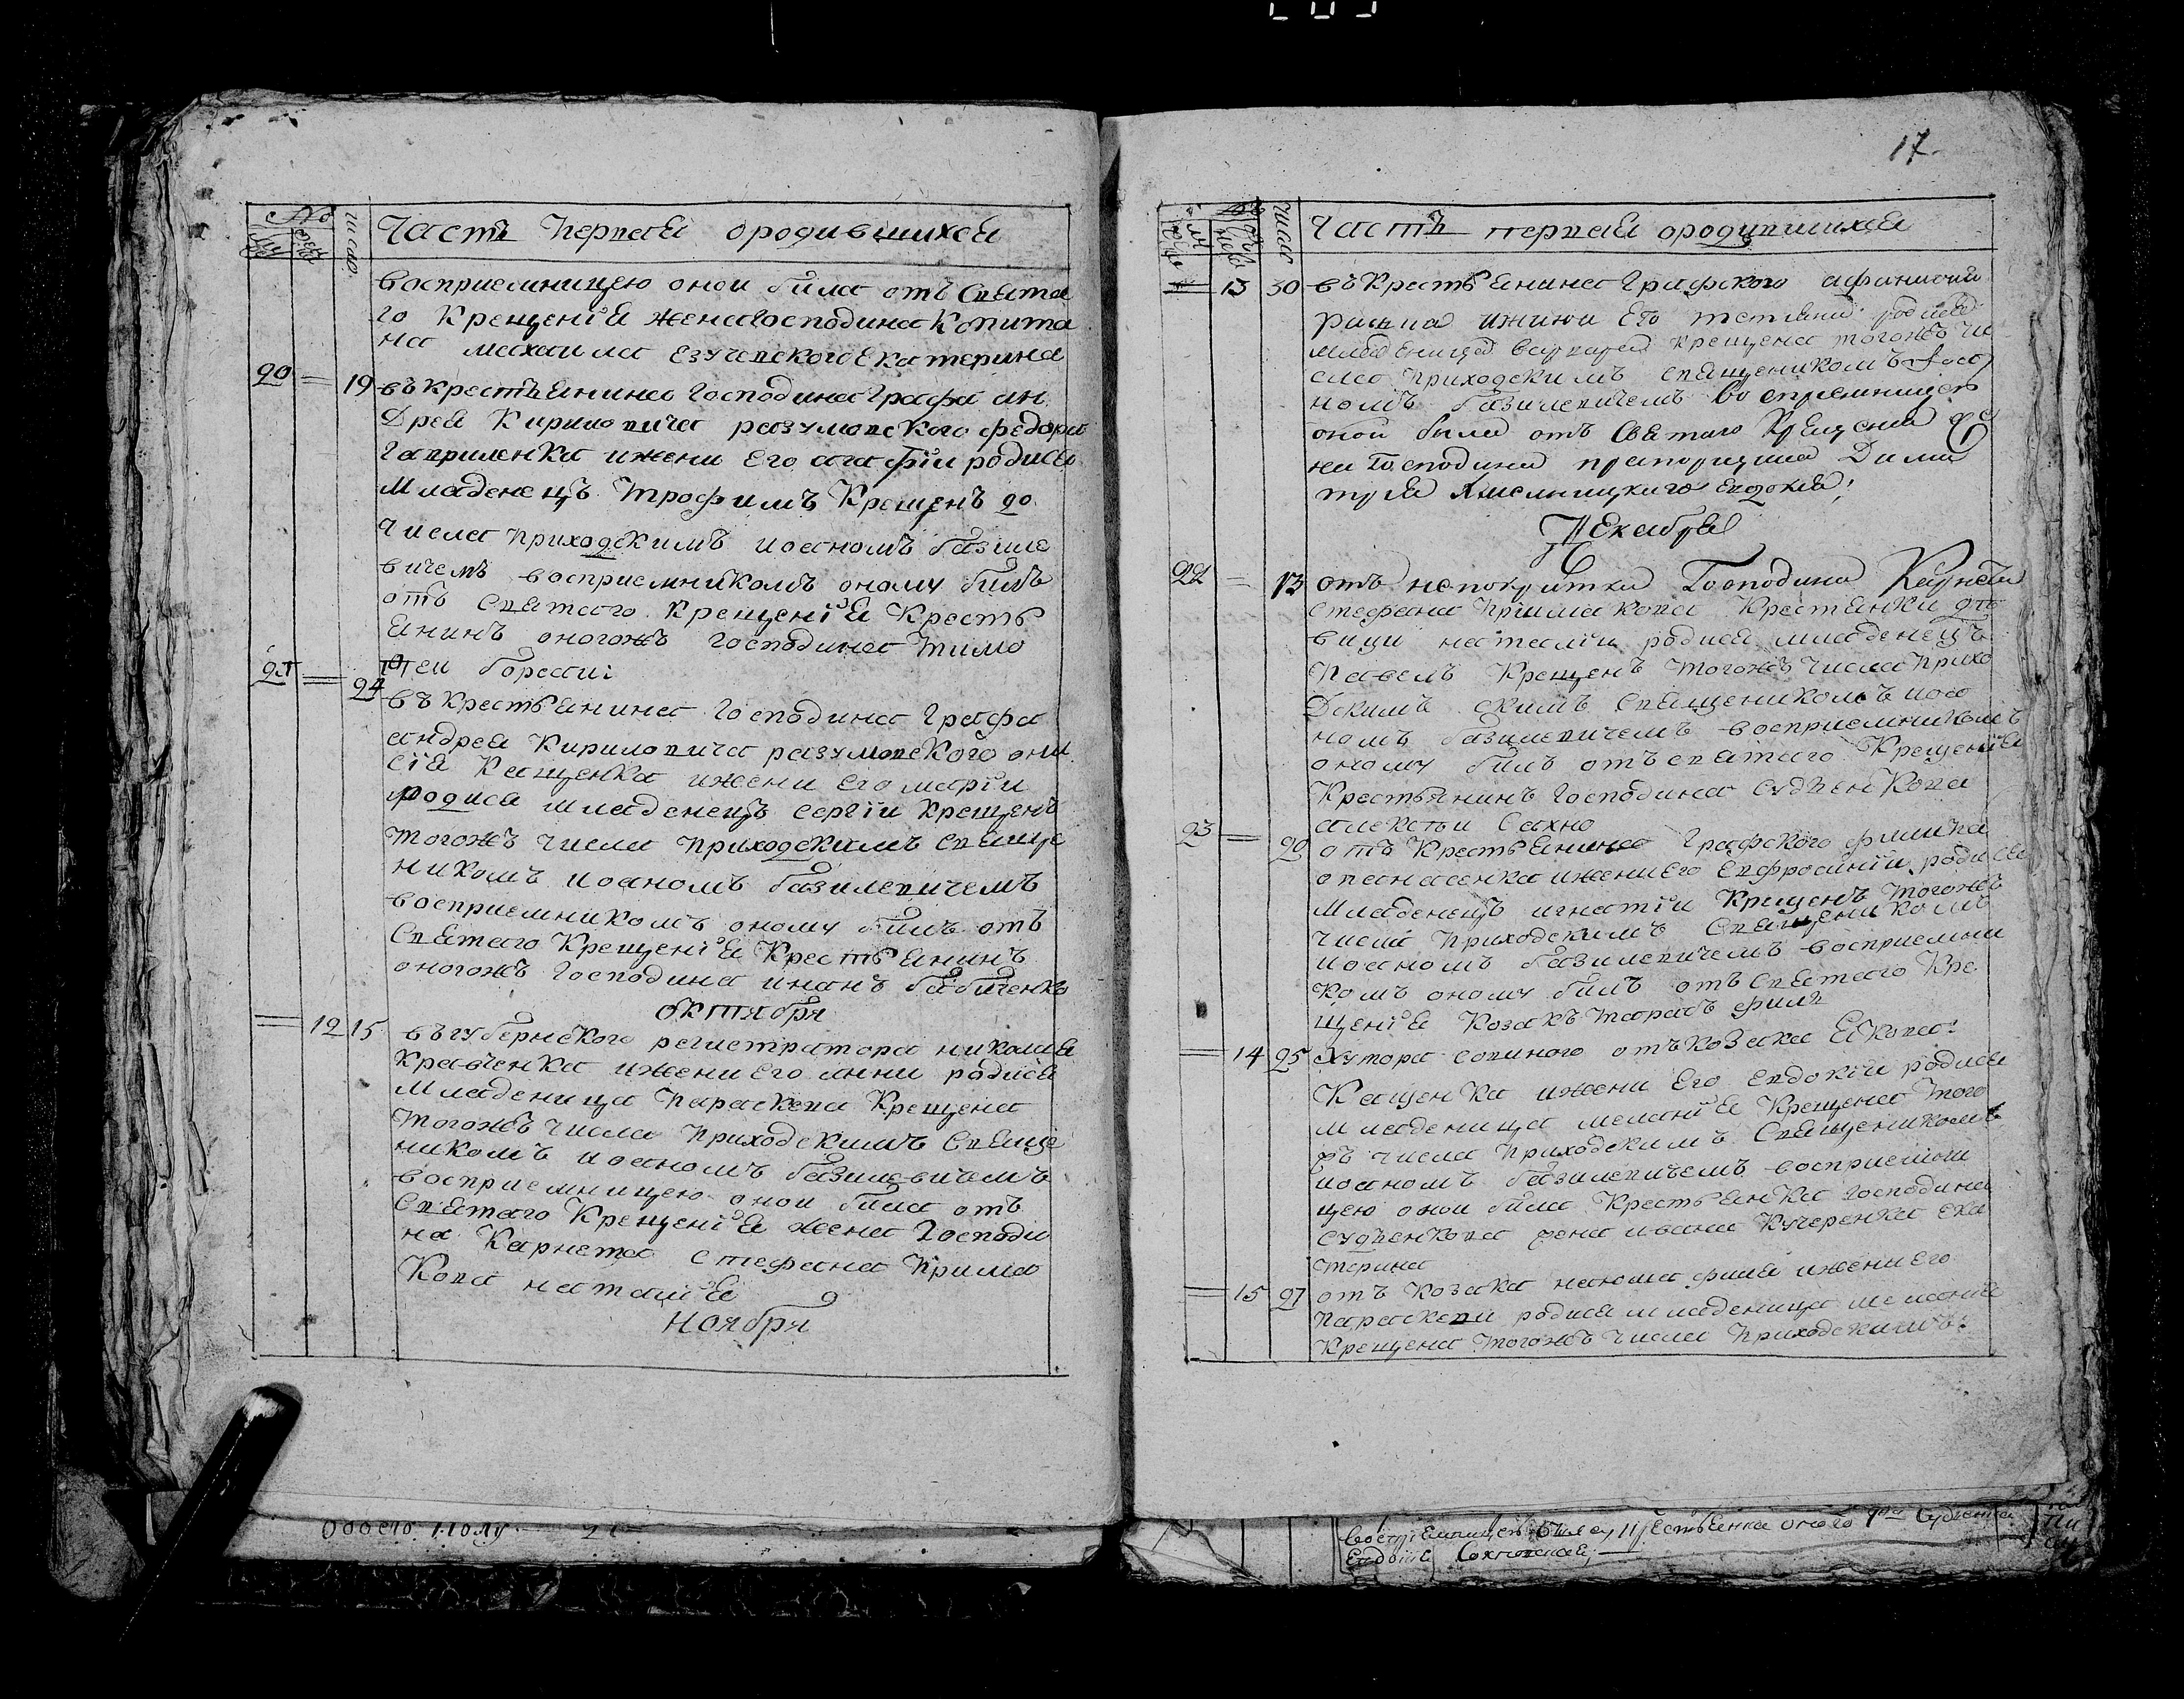 Часть Первая ородившихся
восприемницею онои била отъ Свята
го Крещенія жена Господина Капита
на михаила Езучевского Екатерина
20 = 19 въ крестьянина Господина Графа ан
Дрея Кириловича разумовского федора
Гавриленка ижени Его агафіи родися
младенецъ Трофимъ Крещенъ 20
числа приходскимъ иоаномъ базиле
вичемъ восприемникомъ оному билъ
отъ Святаго Крещенія Кресть
янинъ оногожъ Господина Тимо
феи бораш:
21 = 24 въ крестьянина Господина Графа
андрея Кириловича разумовского они
сія Кащенка ижени его маріи
родися младенецъ сергіи Крещенъ
тогожъ числа приходскимъ Свяще
никомъ иоаномъ базилевичемъ
восприемникомъ оному билъ отъ
Святаго Крещенія Крестьянинъ
оногожъ Господина иванъ бабиченкъ
октября
= 12 15 въ губернского регистратора николая
Кравченка ижени его анни родися
младеница Параскева Крещена
тогожъ числа приходскимъ Свяще
никомъ иоаномъ базилевичемъ
восприемницею онои била отъ
Святаго Крещенія жена Господи
на Карнета стефана Прима
Кова наталія
Ноября
17
Часть первая ородившихся
= 13 30 въ Крестьянина Графского
ижини Его татяни родися
младеница варвара крещена тогожъ чи
сла приходскимъ священикомъ иоа
номъ базилевичемъ восприемницею
оной была отъ Святаго Крещения же
на Господина прапорщика Дими
трия Хмелницкаго евдокия:
Декабря
22 = 13 отъ непокритки Господина Карнета
стефана Примакова крестянки дъ
вици наталіи родися младенецъ
Павелъ Крещенъ тогожъ числа Прихо
Дскимъ скимъ Священикомъ иоа
номъ базилевичемъ восприемникомъ
оному билъ отъ святаго Крещенія
Крестьянинъ Господина Судиенкова
алексеи Сахно
23 = 20 отъ Крестьянина Графского филипа
опанасенка ижени его Евфросиніи родися
младенецъ игнатіи Крещенъ тогожъ
числа Приходскимъ Священикомъ
иоаномъ базилевичемъ восприемни
комъ оному билъ отъ Святаго Кре
щенія Козакъ тарасъ филь
= 14 25 Хутора совиного отъ козака Якова:
Кащенка ижени его Евдокіи родися
младеница меланія Крещена того
жъ числа Приходскимъ Священикомъ
иоаномъ базилевичемъ восприемни
цею онои била Крестьянка Господина
судиенкова жена ивана Кучеренка ека
терина
= 15 27 отъ козака наюма филя ижени его
Параскеви родися младеница мелания
Крещена тогожъ числа Приходскимъ:
обоего полу